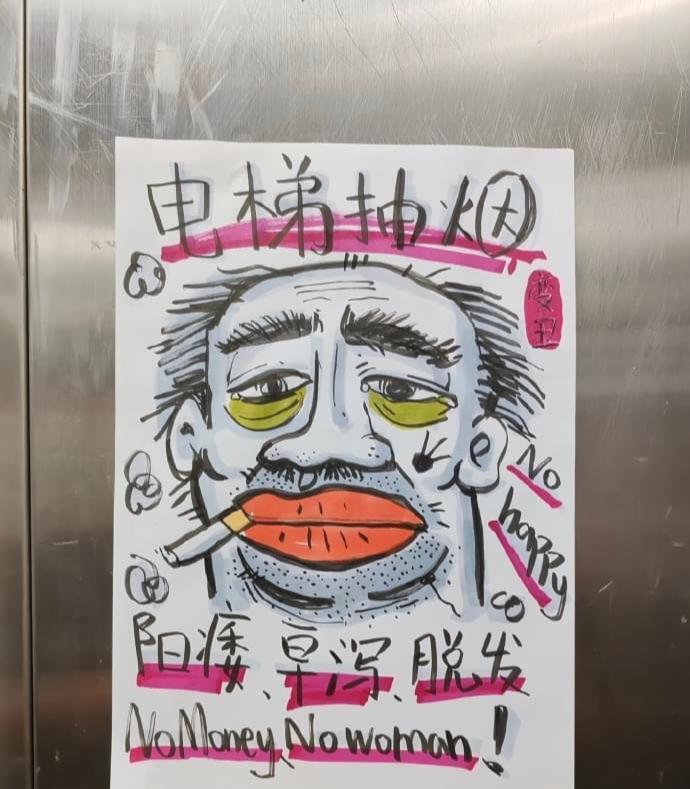 电梯抽烟
变丑
No
happy
阳痿、早泻、脱发
No Money, No woman!